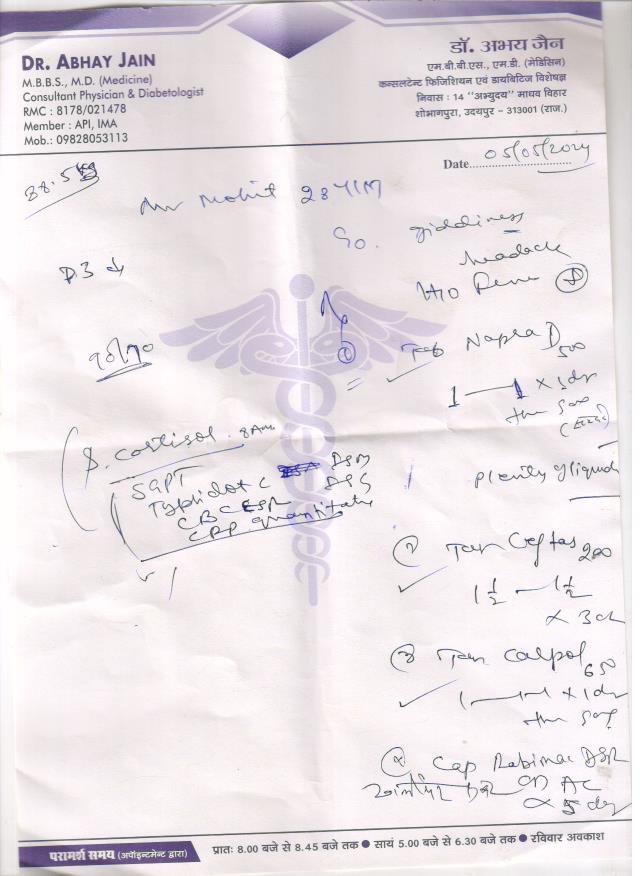 DR. ABHAY JAIN
M.B.B.S., M.D. (Medicine)
Consultant Physician & Diabetologist
RMC : 8178/021478
Member : API, IMA
Mob.: 09828053113
डॉ. अभय जैन
एम.बी.बी.एस., एम.डी. (मेडिसिन)
कन्सलटेन्ट फिजिशियन एवं डायबिटिज विशेषज्ञ
निवास : 14 "अभ्युदय" माधव विहार
शोभागपुरा, उदयपुर - 313001 (राज.)
Date 05/05/2024
88.5 kg
Mr Mohit 28Y/M
giddiness
headache
H/O
D3 ↓
90/70
① Tab Napra D 500
1 — 1 × 1 day
then SOS
Plenty of liquids
S. Cortisol 8 Am
SGPT
Typhidot C
CBC ESR
CRP quantitative
② Tab Ceftas 200
1½ — 1½
× 3 d
③ Tab Calpol 650
1 — 1 — 1 × 1 day
then SOS
④ Cap Rabimac DSR
खाली पेट OD AC
× 5 day
परामर्श समय (अपॉइन्टमेन्ट द्वारा)
प्रातः 8.00 बजे से 8.45 बजे तक ● सायं 5.00 बजे से 6.30 बजे तक ● रविवार अवकाश